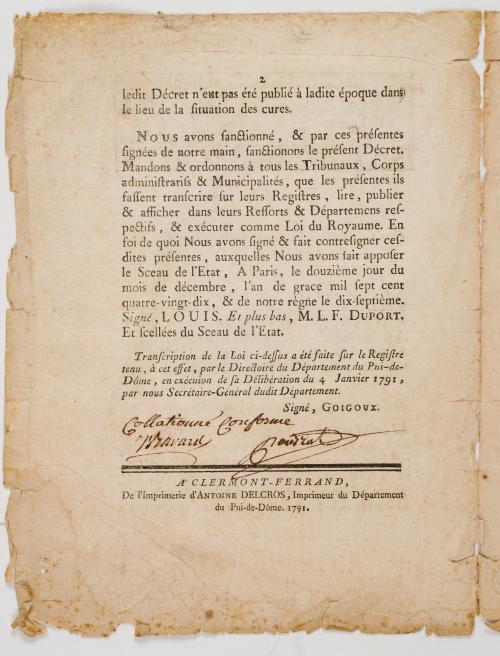 2
ledit Décret n'eut pas été publié à ladite époque dans
le lieu de la situation des cures.
NOUS avons ſanctionné, & par ces préſentes
ſignées de notre main, ſanctionons le préſent Décret.
Mandons & ordonnons à tous les Tribunaux, Corps
adminiſtratifs & Municipalités, que les préſentes ils
faſſent tranſcrire ſur leurs Regiſtres, lire, publier
& afficher dans leurs Reſſorts & Départemens reſ-
pectifs, & exécuter comme Loi du Royaume. En
foi de quoi Nous avons ſigné & fait contreſigner ceſ-
dites préſentes, auxquelles Nous avons fait appoſer
le Sceau de l'Etat, A Paris, le douzième jour du
mois de décembre, l'an de grace mil ſept cent
quatre-vingt-dix, & de notre règne le dix-ſeptième.
Signé, LOUIS. Et plus bas, M. L. F. DUPORT.
Et ſcellées du Sceau de l'Etat.
Tranſcription de la Loi ci-deſſus a été faite ſur le Regiſtre
tenu, à cet effet, par le Directoire du Département du Pui-de-
Dôme, en exécution de ſa Délibération du 4 Janvier 1791,
par nous Secrétaire-Général dudit Département.
Signé, GOIGOUX.
Collationné Conforme
Bravard
A CLERMONT-FERRAND,
De l'Imprimerie d'ANTOINE DELCROS, Imprimeur du Département
du Pui-de-Dôme. 1791.